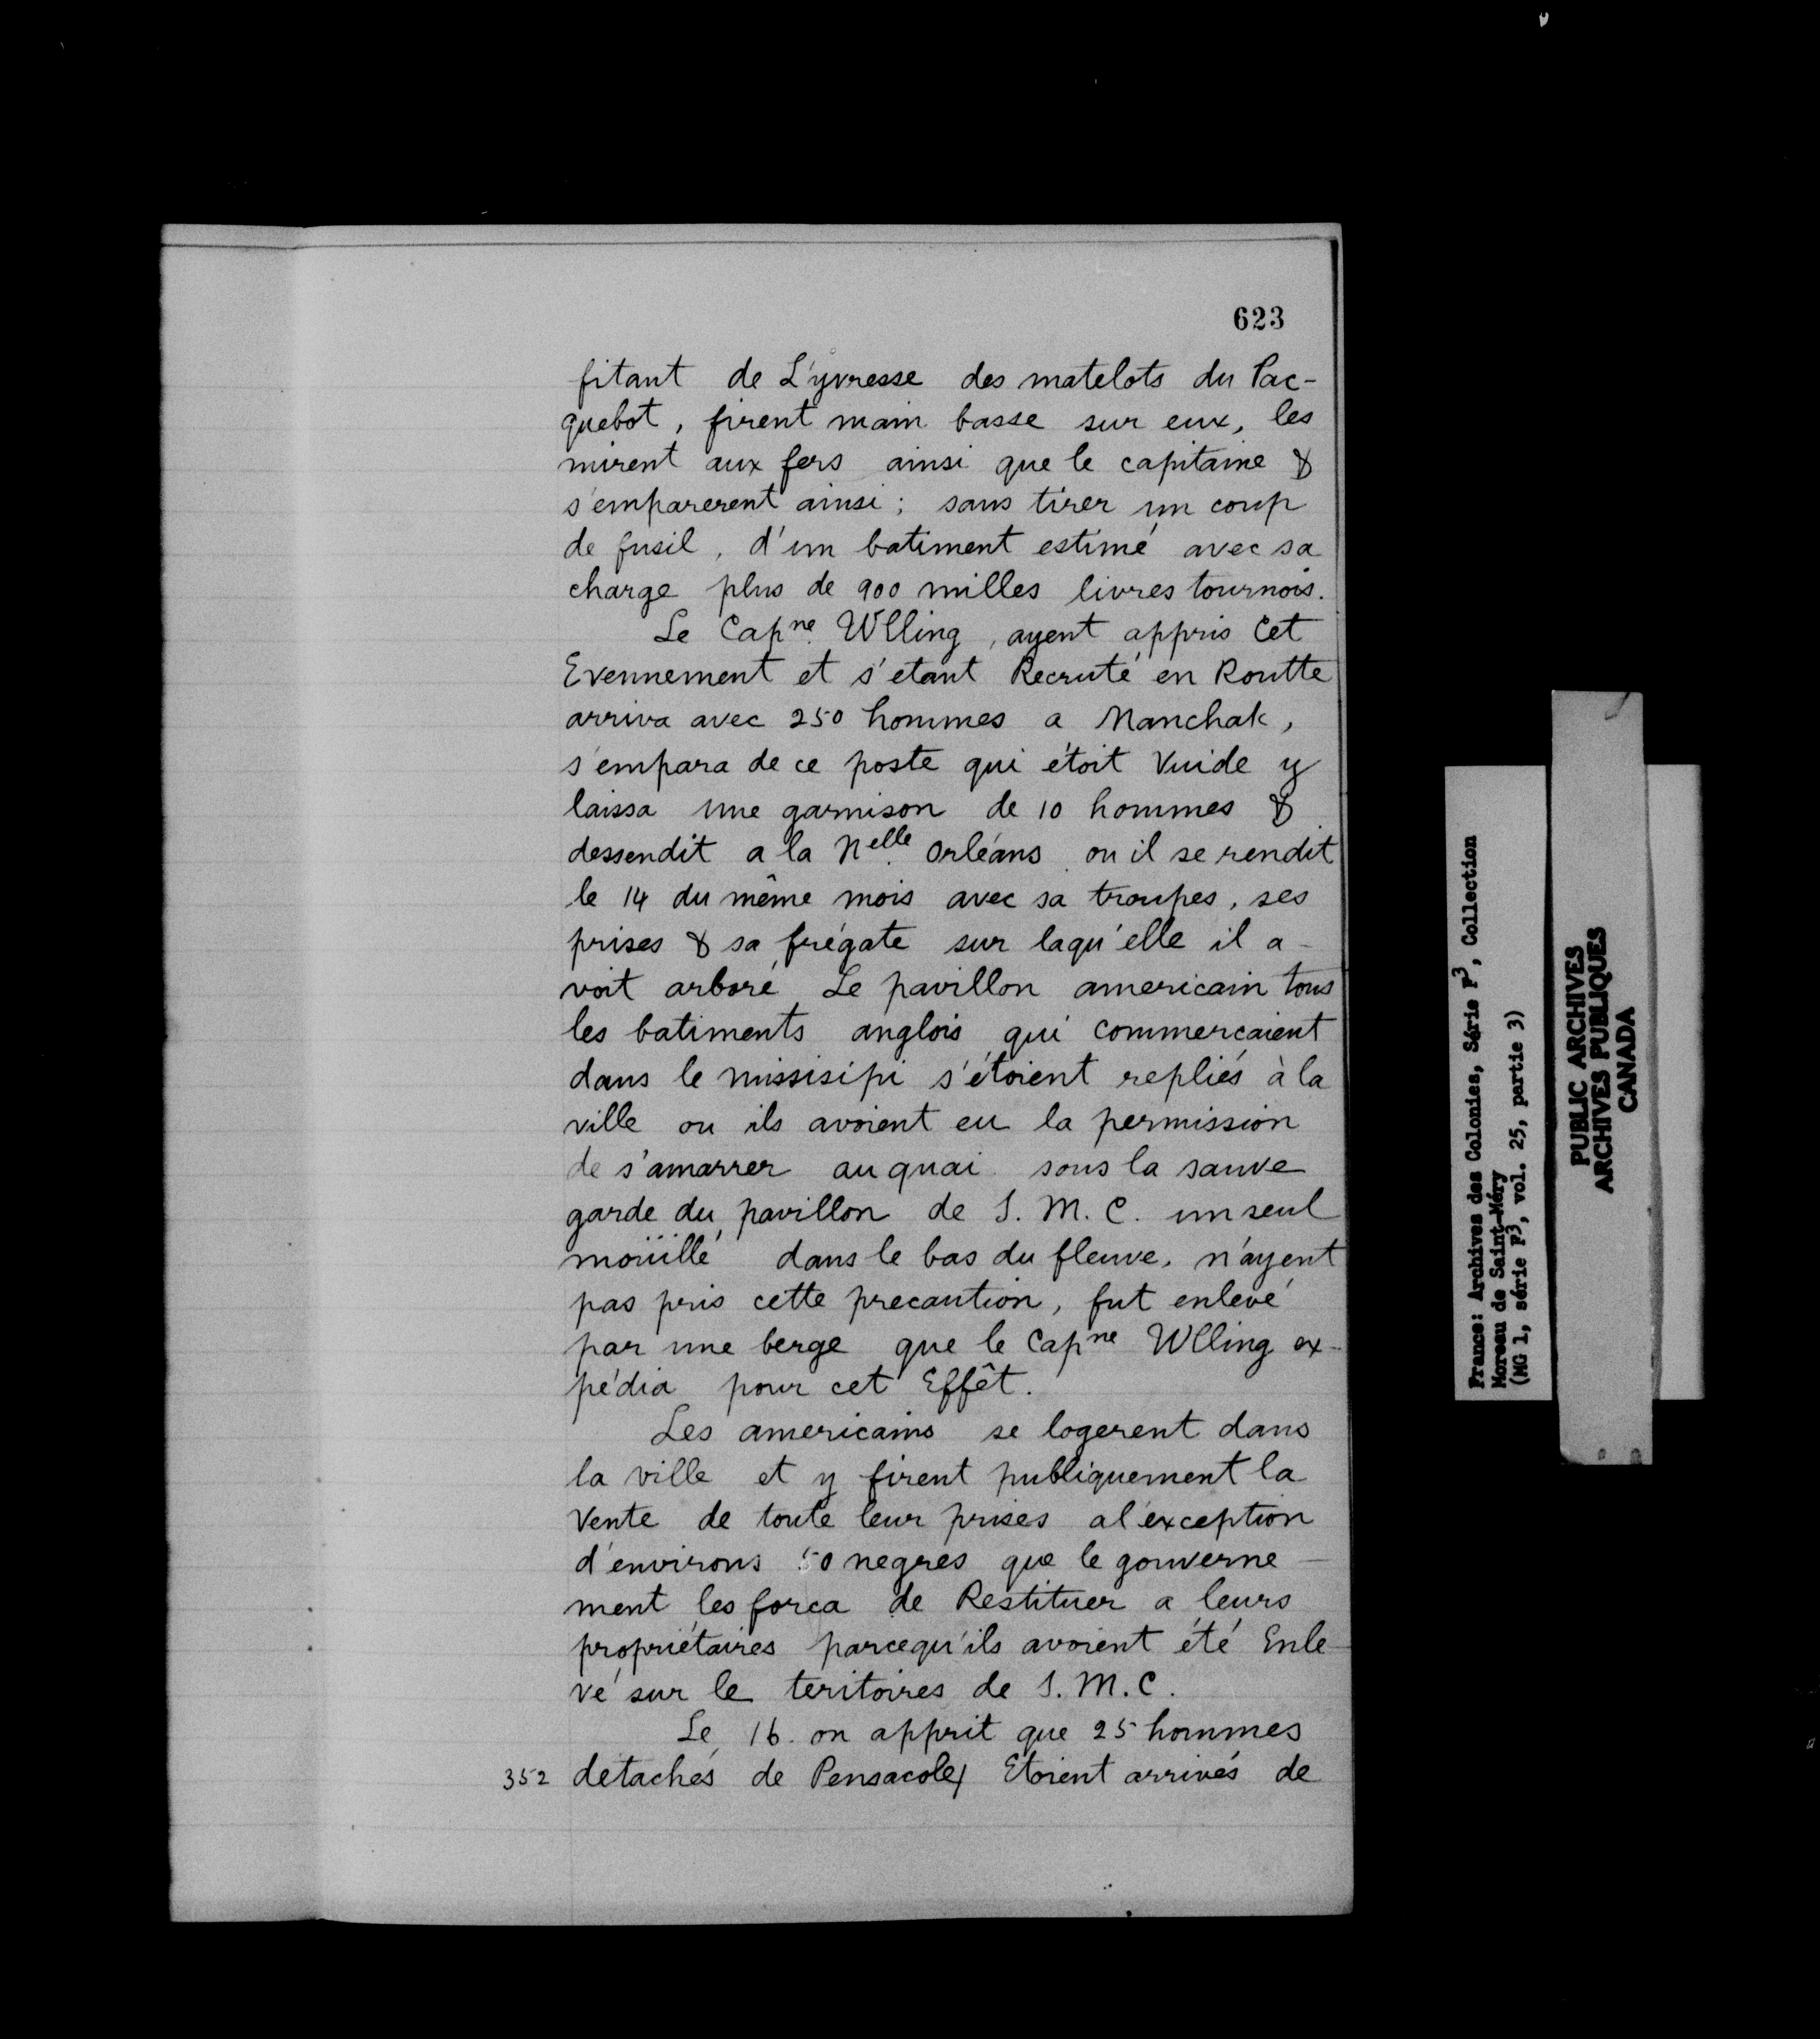 623
fitant de L'yvresse des matelots du Pac-
quebot, firent main basse sur eux, les
mirent aux fers ainsi que le capitaine &
s'emparerent ainsi; sans tirer un coup
de fusil, d'un batiment estimé avec sa
charge plus de 900 milles livres tournois.
Le Capne. Wlling, ayent appris Cet
Evennement et s'etant Recruté en Routte
arriva avec 250 hommes a Manchak,
s'empara de ce poste qui étoit Vuide y
laissa une garnison de 10 hommes &
dessendit a la Nelle. Orléans ou il se rendit
le 14 du même mois avec sa troupes, ses
prises & sa frégate sur laqu'elle il a-
voit arboré Le pavillon americain tous
les batiments anglois qui commercaient
dans le missisipi s'étoient repliés à la
ville ou ils avoient eu la permission
de s'amarrer au quai sous la sauve
garde du pavillon de S. M. C. un seul
moüillé dans le bas du fleuve, n'ayent
pas pris cette precaution, fut enlevé
par une berge que le Capne Wlling ex-
pédia pour cet Effêt.
Les americains se logerent dans
la ville et y firent publiquement la
Vente de toute leur prises a l'exception
d'environs 50 negres que le gouverne-
ment les forca de Restituer a leurs
propriétaires parcequ'ils avoient été Enle-
vé sur le teritoires de S. M. C.
Le 16. on apprit que 25 hommes
352 detachés de Pensacole Etoient arrivés de
France: Archives des Colonies, Série F3, Collection
Moreau de Saint-Méry
(MG 1, série F3, vol. 25, partie 3)
PUBLIC ARCHIVES
ARCHIVES PUBLIQUES
CANADA